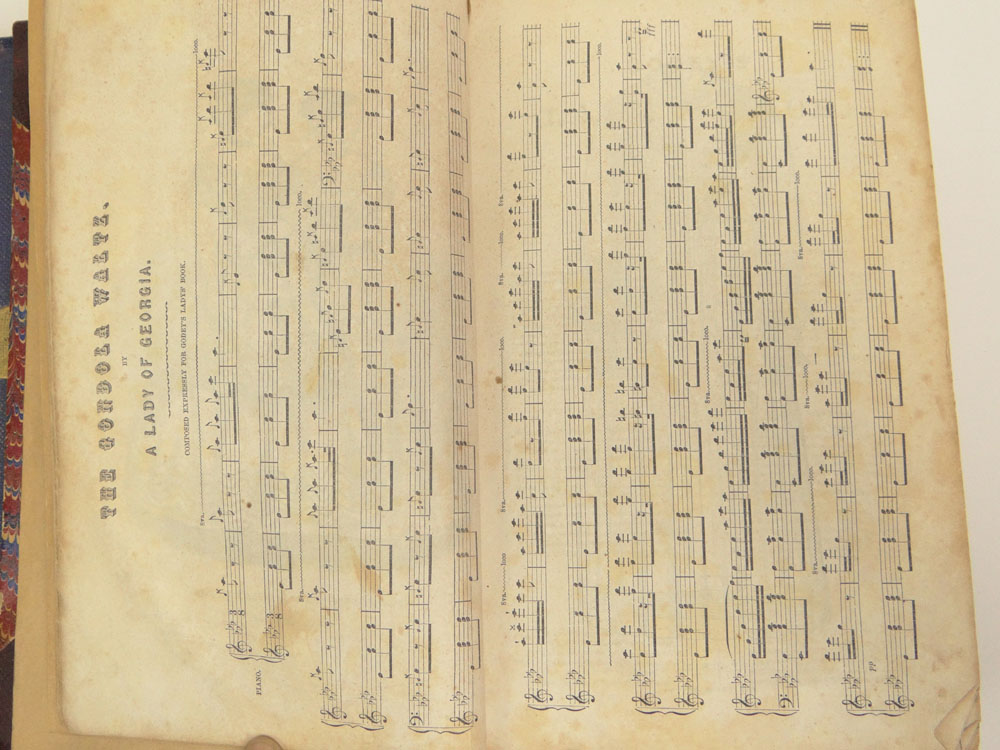 THE GONDOLA WALTZ.
BY
A LADY OF GEORGIA.
COMPOSED EXPRESSLY FOR GODEY'S LADYS' BOOK.
8va. loco.
PIANO.
8va. loco.
8va. loco 8va. loco. 8va. loco. 8va.
loco.
8va. loco.
8va. loco. 8va. loco.
pp